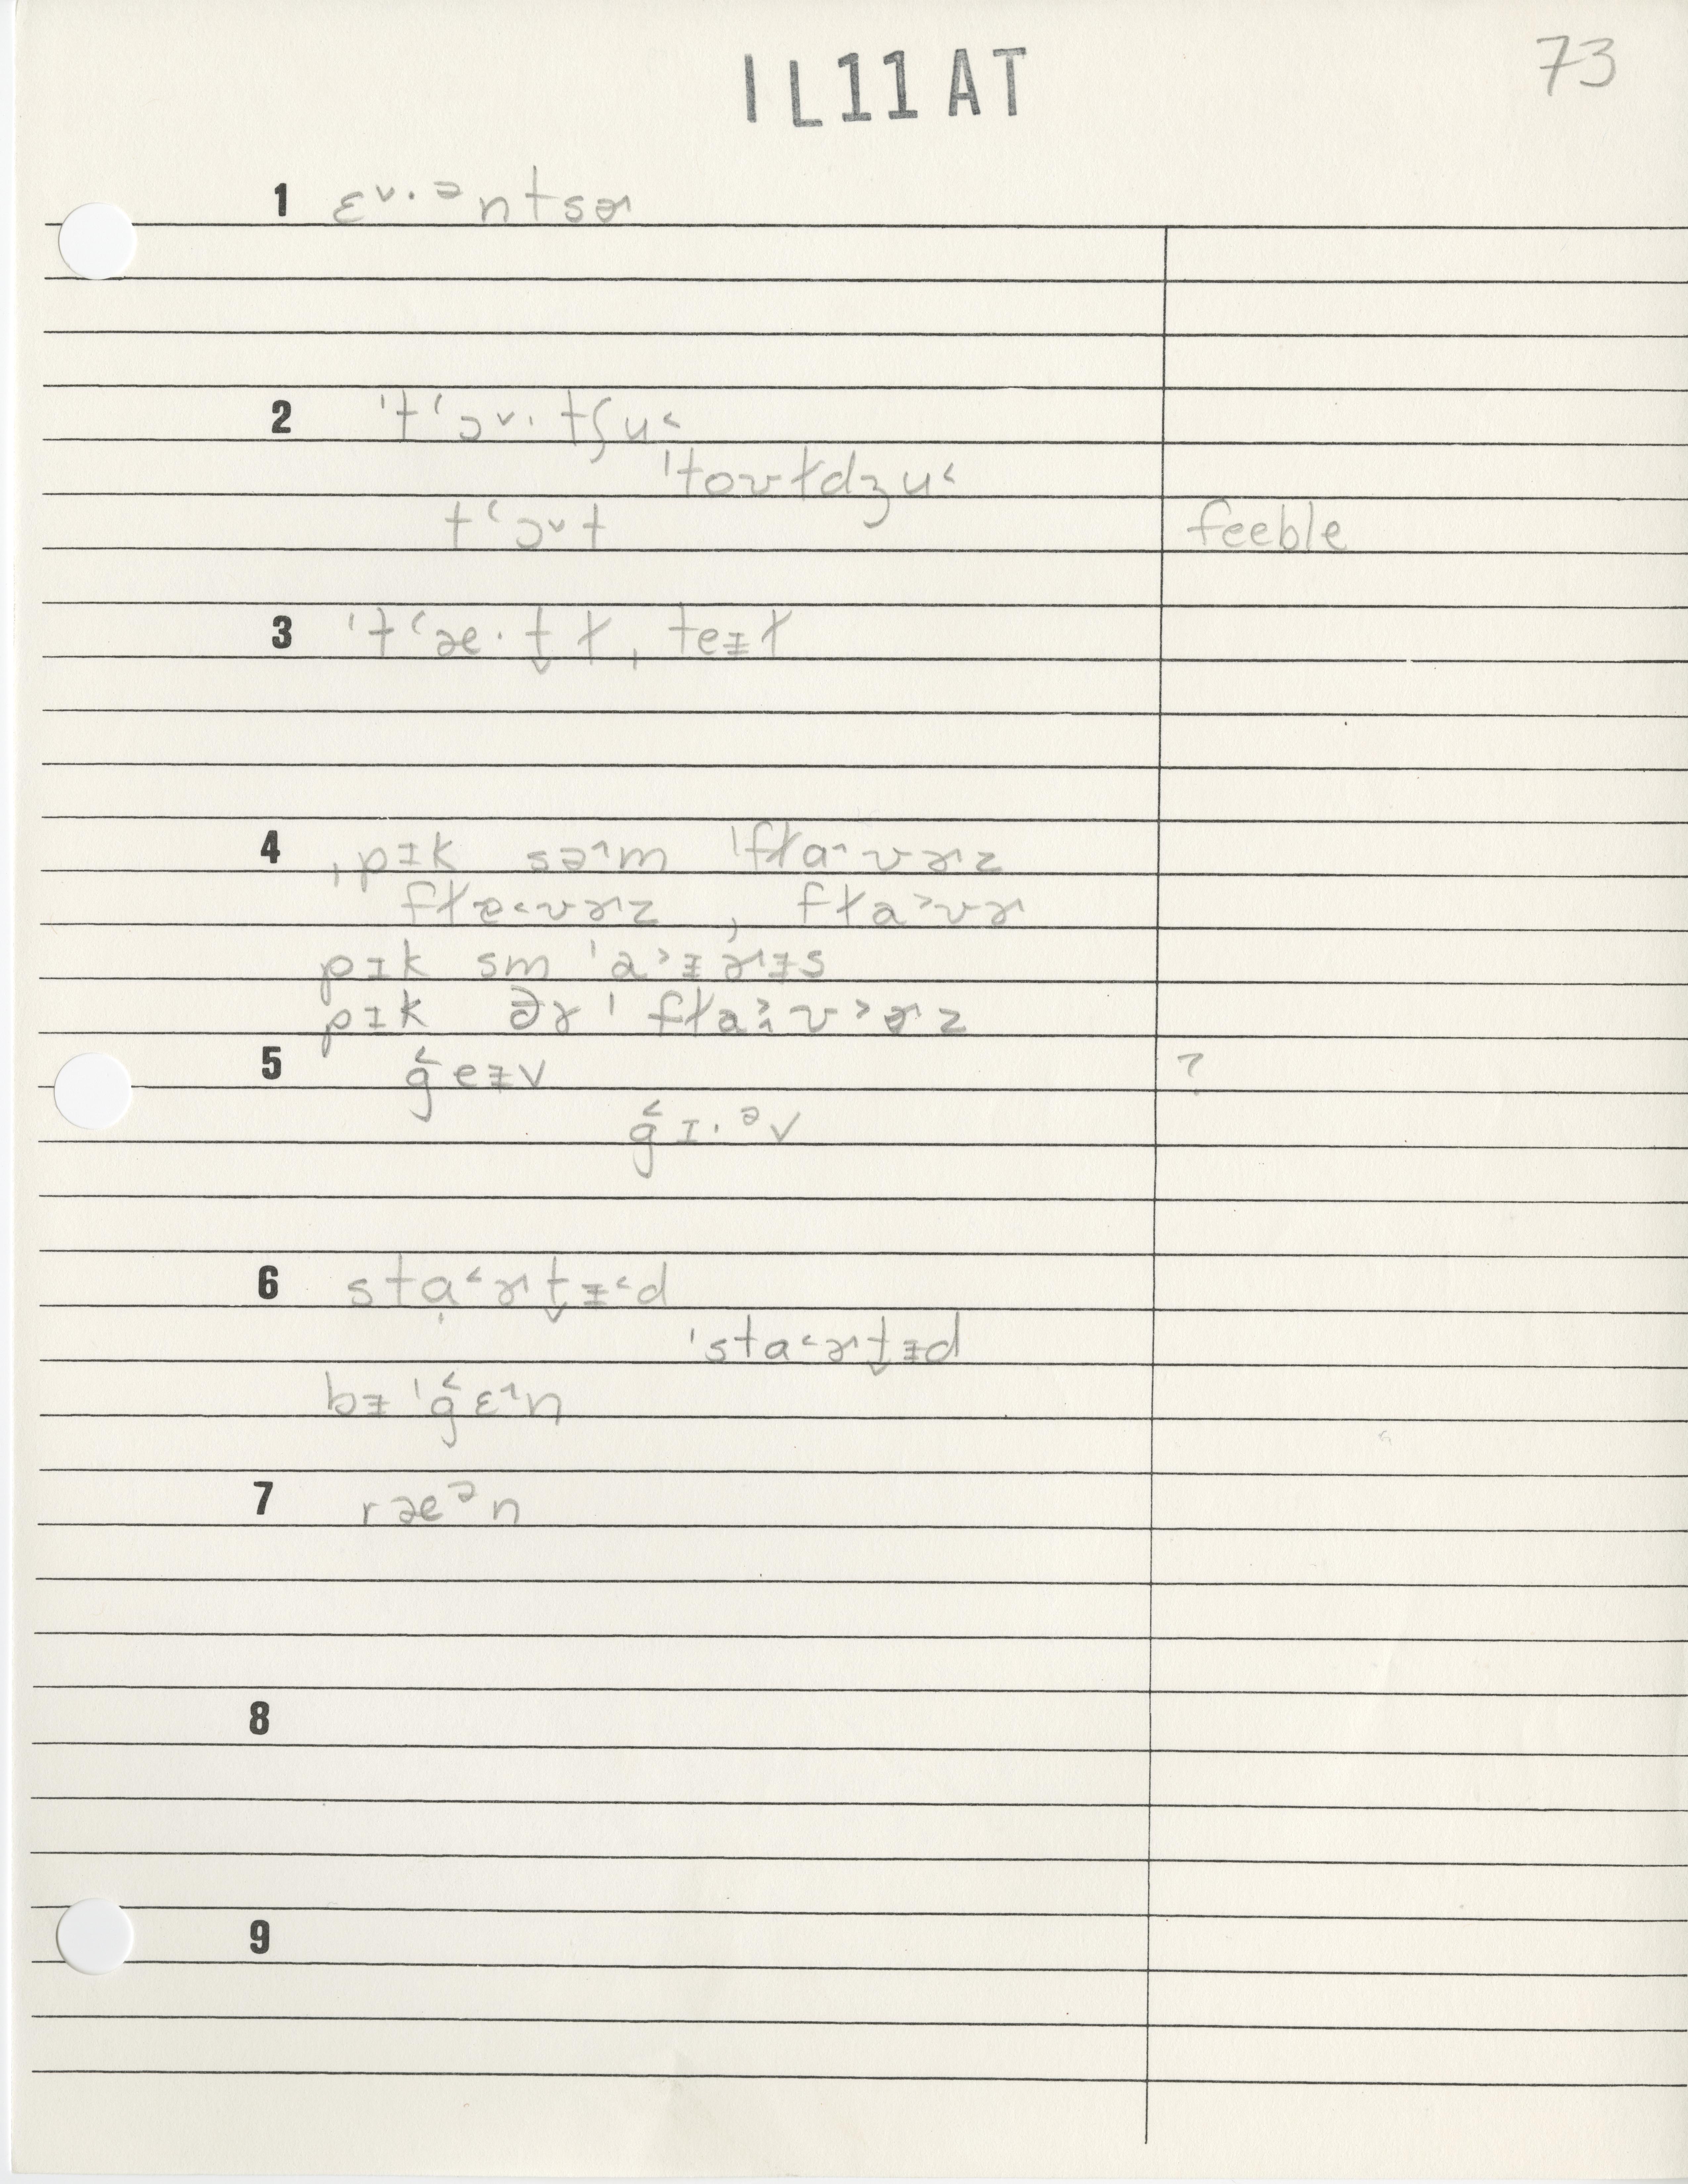 IL11AT
73
1 ɛ˅·ᵊntsɚ
2 ˈtʻɔ˅·tʃu˂
ˈtoʊɫdʒu˂
tʻɔ˅t feeble
3 ˈtʻæ·t̬ɫ ˌteᵻɫ
4 ˌpɪk sə˄m ˈfɫa˄ʊɚz
fɫɐ˂ʊɚz , fɫa˃ʊɚ
pɪk sm ˈa˃ᵻɚᵻs
pɪk ðɤ ˈfɫa˃ʊ˃ɚz
5 g̑eᵻv ?
g̑ɪ·ᵊv
6 stɑ˂ɚt̬ᵻ˂d
ˈstɑ˂ɚt̬ᵻd
bᵻˈg̑ɛ˄n
7 ræᵊn
8
9